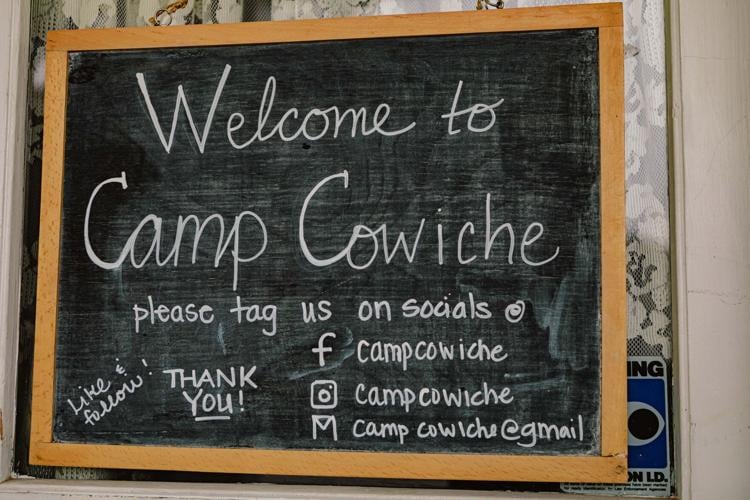 Welcome to
Camp Cowiche
please tag us on socials @
campcowiche
Like &
follow!
THANK
YOU!
campcowiche
campcowiche@gmail
NG
ON I.D.